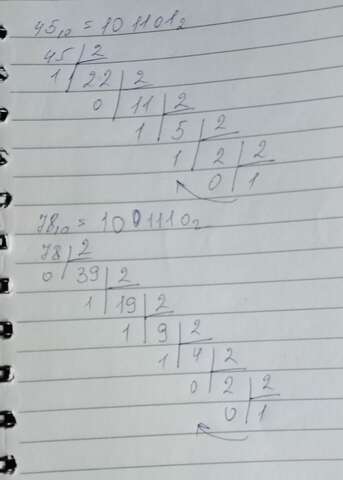 45₁₀ = 101101₂
45 2
1 22 2
0 11 2
1 5 2
1 2 2
0 1
78₁₀ = 1001110₂
78 2
0 39 2
1 19 2
1 9 2
1 4 2
0 2 2
0 1